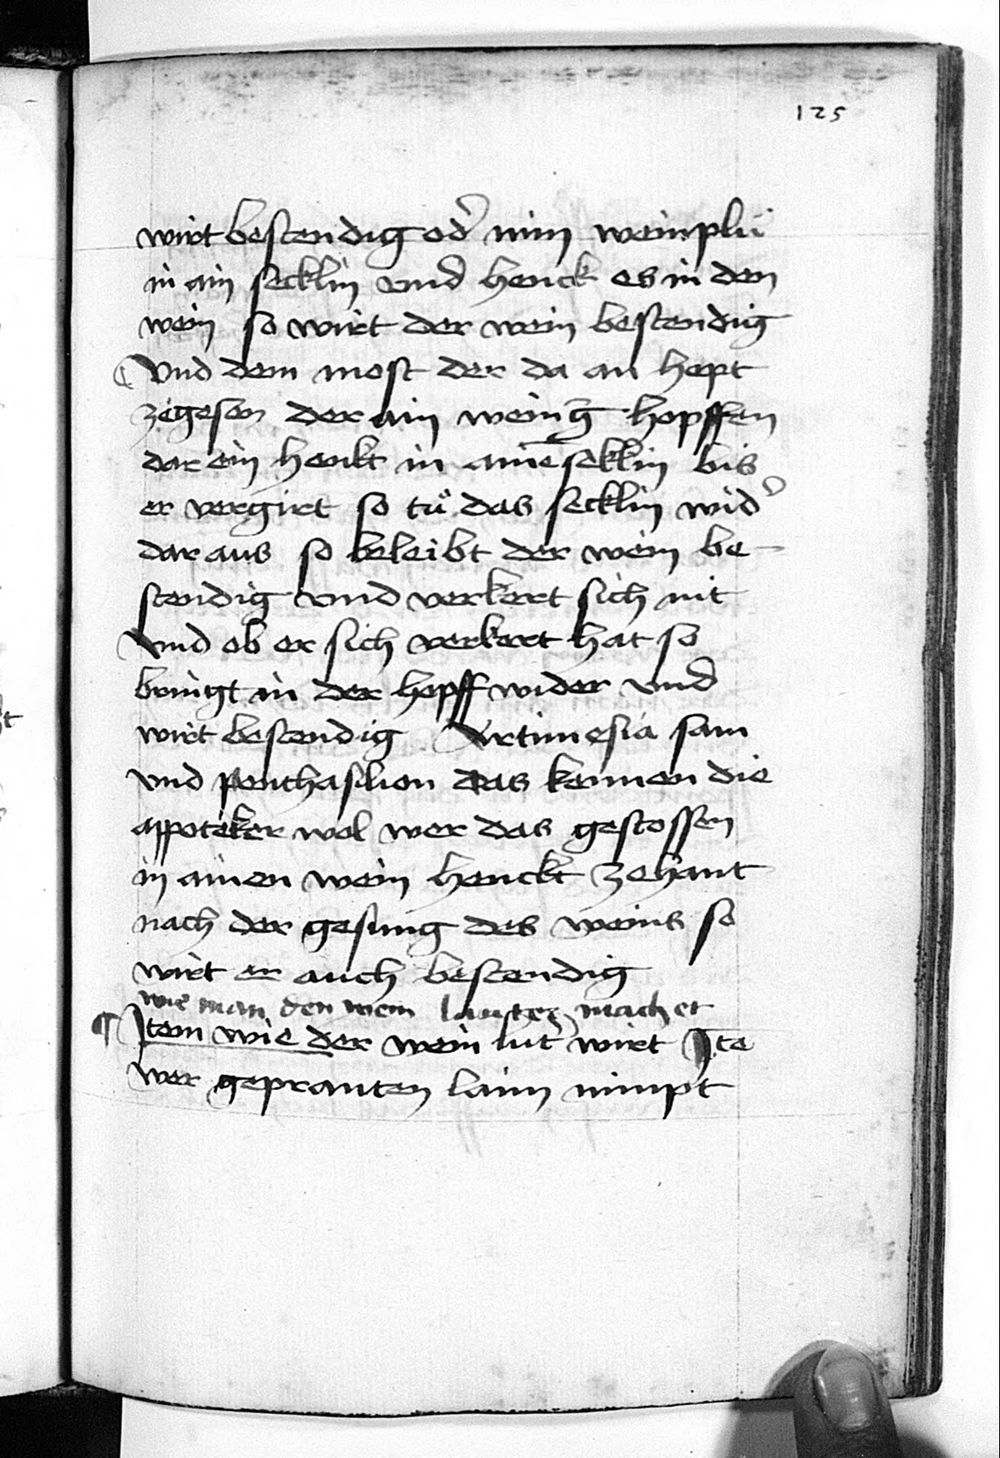 125
wirt bestendig od' nim weinplü
in ain secklin vnd henck es in den
wein so wirt der wein bestendig
Vnd dem most der da an hept
zegesen der ain wenig hopffen
dar ein henkt in aine̅ seklin bis
er vergirt so tuͦ das secklin wid'
dar aus so beleibt der wein be-
stendig vnd verkert sich nit
Vnd ob er sich verkert hat so
bringt in der hopff wider vnd
wirt bestendig Artimesia sam
vnd penthasilion das kennen die
appoteker wol wer das gestossen
in ainen wein henckt zehant
nach der gesung des weins so
wirt er auch bestendig
wie man den wein lautter machet
¶ Item wie der wein lut' wirt Ite̅
wer gepranten laim nimpt